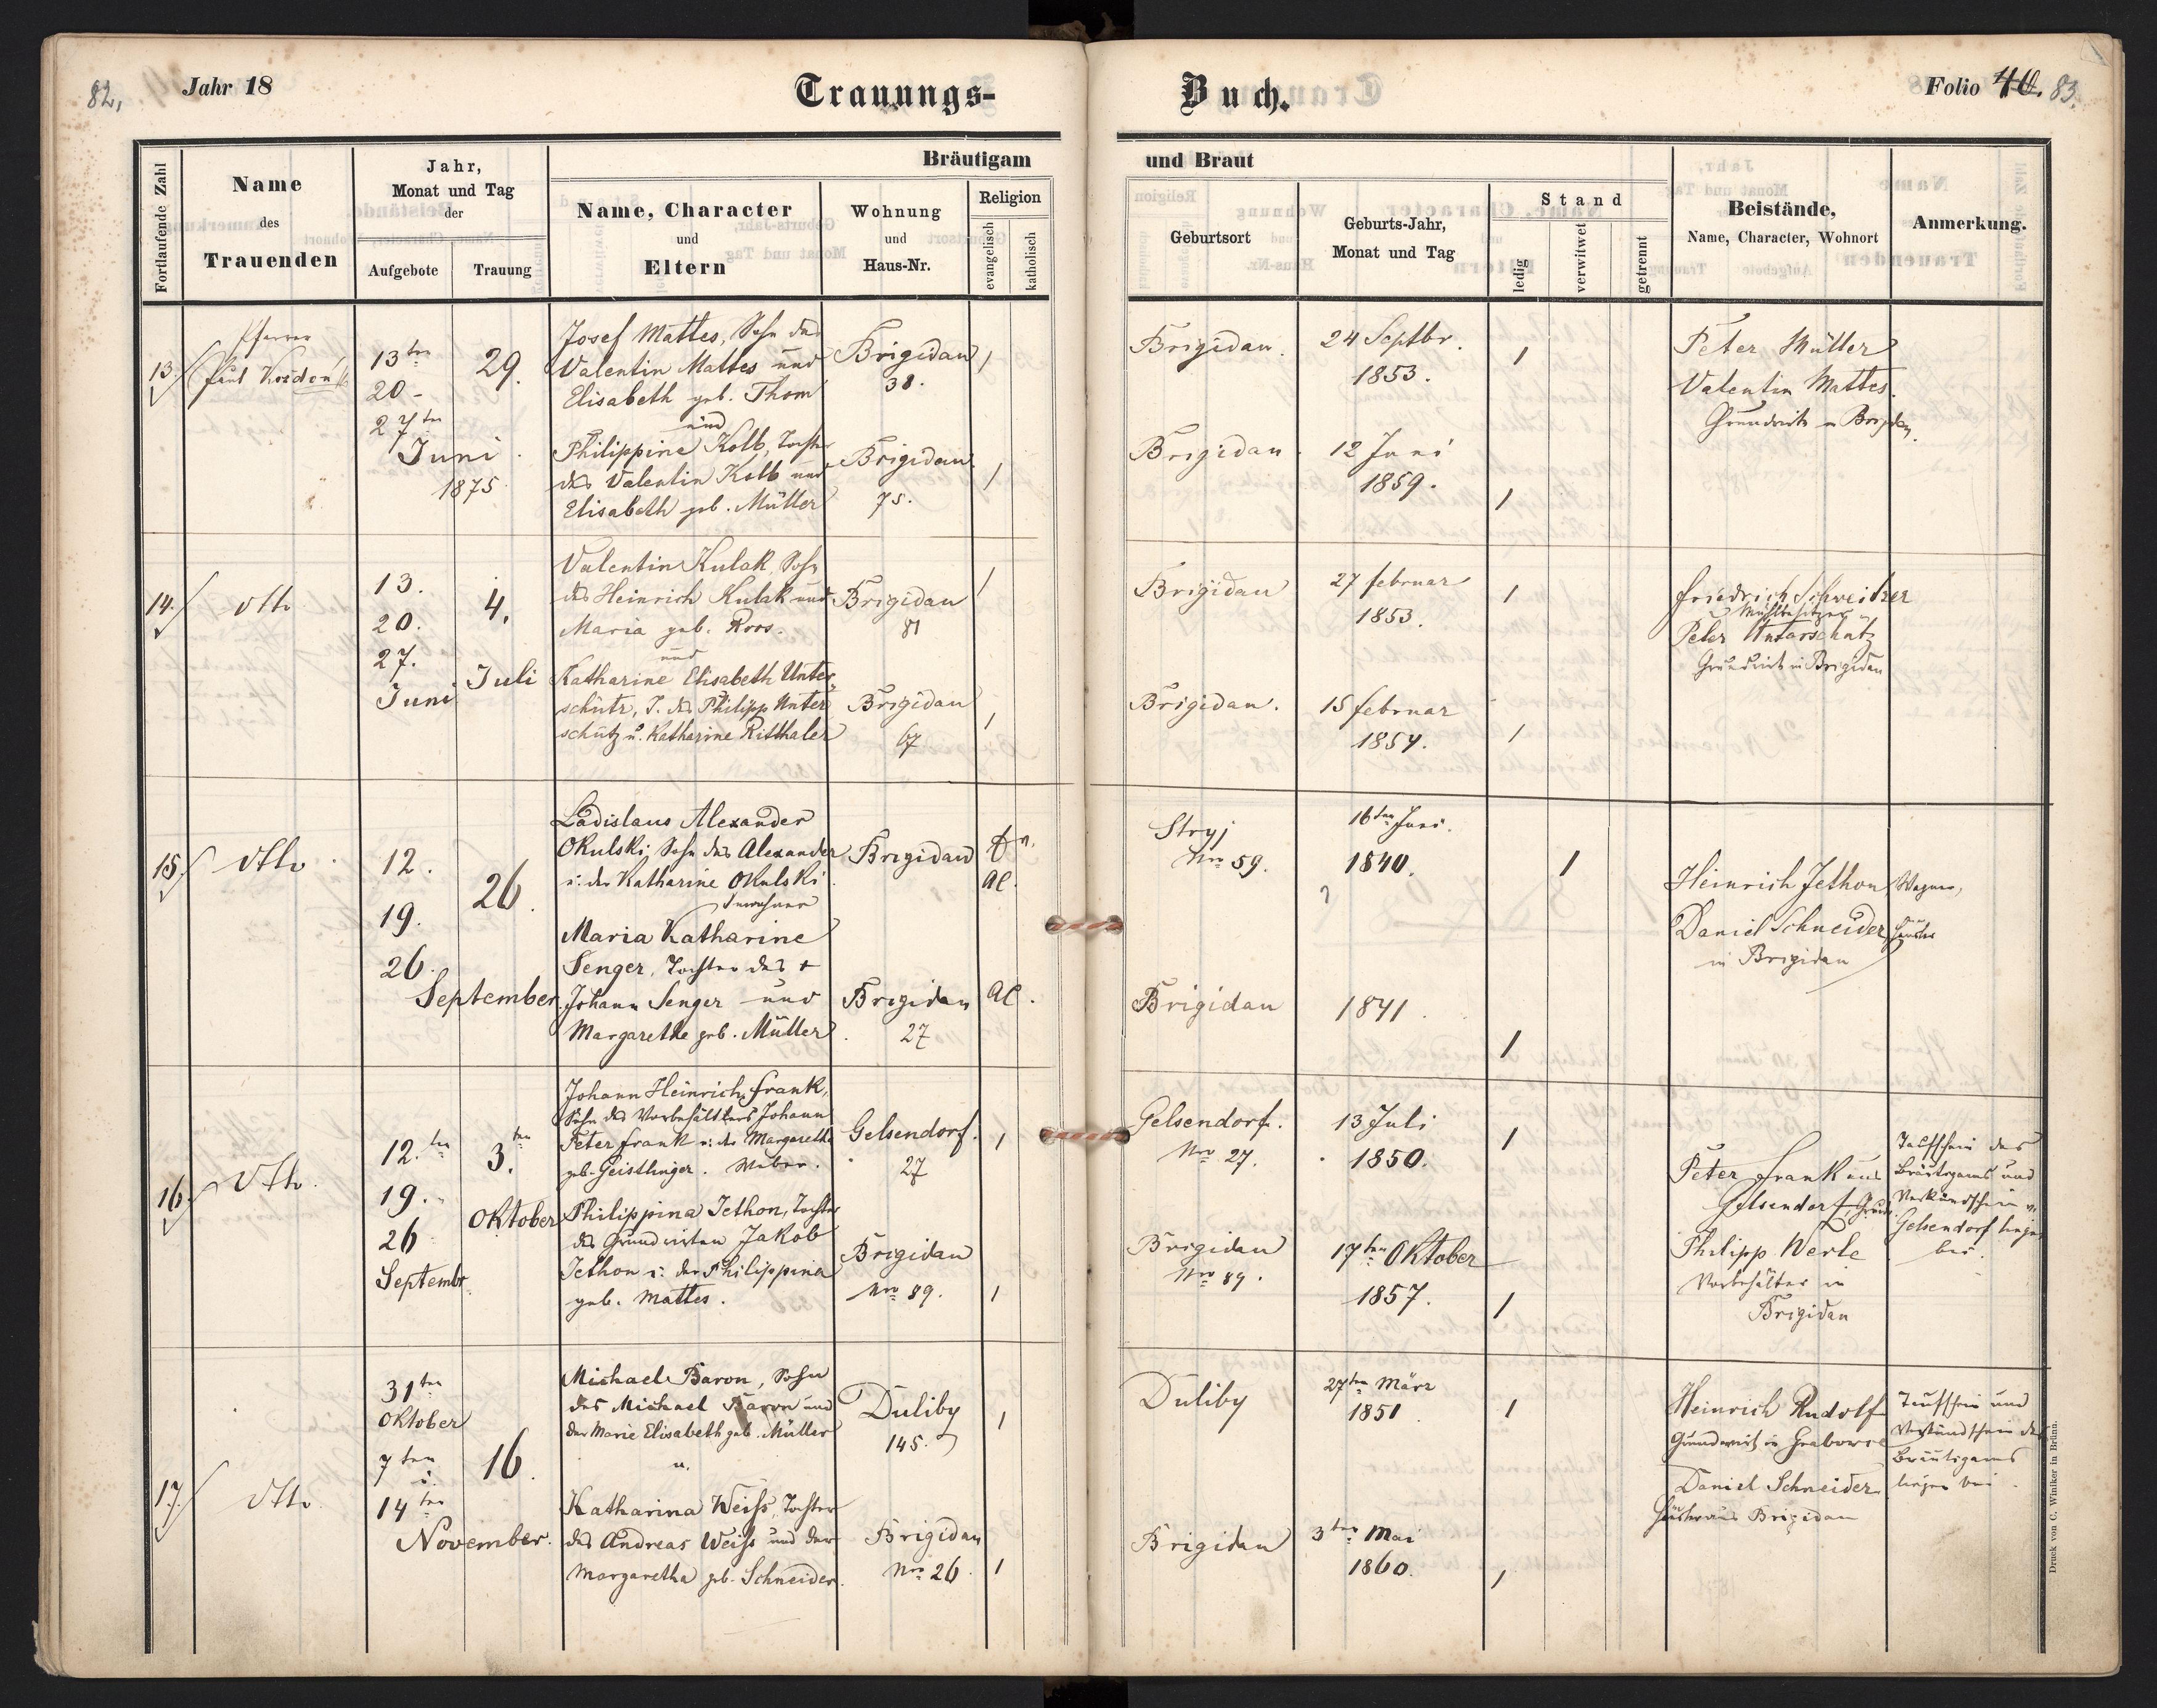 82,
Jahr 18
Trauungs-
Buch.
Folio 40. 83.
Fortlaufende Zahl
Name
des
Trauenden
Jahr,
Monat und Tag
der
Aufgebote
Trauung
Bräutigam
und Braut
Name, Character
und
Eltern
Wohnung
und
Haus-Nr.
Religion
evangelisch
katholisch
Geburtsort
Geburts-Jahr,
Monat und Tag
Stand
ledig
verwitwet
getrennt
Beistände,
Name, Character, Wohnort
Anmerkung.
13.
Pfarrer
Paul
13ten
20 -
27ten
Juni
1875
29.
Josef Mattes, Sohn des
Valentin Mattes und
Elisabeth geb. Thom
und
Philippine Kolb, Tochter
des Valentin Kolb und
Elisabeth geb. Müller
Brigidau
38.
Brigidau
75.
Brigidau.
24 Septbr.
1853.
Brigidau
12 Juni
1859.
Peter Müller
Valentin Mattes.
Grundwirte in Brigidau.
14.
dtto
13.
20.
27.
Juni
4.
Juli
Valentin Kulak, Sohn
des Heinrich Kulak und
Maria geb. Roos.
und
Katharine Elisabeth Unter-
schütz, T. des Philipp Unter
schütz u. Katharine Ritthaler
Brigidau
81
Brigidau
67
Brigidau
27 februar
1853.
Brigidau.
15 februar
1857.
Friedrich Schweitzer
Peter Unterschütz
Grundwirt in Brigidau
15
dtto
12.
19.
26.
September
26.
Ladislaus Alexander
Okulski, Sohn des Alexander
u: der Katharine Okulski
Inwohner
Maria Katharine
Senger, Tochter des +
Johann Senger und
Margarethe geb. Müller
Brigidau
Brigidau
27
AC.
AC.
Stryj
Nro 59.
16ten Juni.
1840.
Brigidau
1841
Heinrich Jethon, Wagner,
Daniel Schneider
in Brigidau
16
dtto.
12.ten
19.
26
Septembr.
3.ten
Oktober
Johann Heinrich Frank,
Sohn des Vorbehälters Johann
Peter Frank u: der Margaretha
geb. Geistlinger. Weber.
Philippina Jethon, Tochter
des Grundwirten Jakob
Jethon u: der Philippina
geb. Mattes.
Gelsendorf.
27
Brigidau
Nro 89.
Gelsendorf.
Nro 27.
13 Juli
1850.
Brigidau
Nro 89.
17ten Oktober
1857.
Peter Frank aus
Gelsendorf, Grundw.
Philipp Werle
Vorbehälter in
Brigidau
Taufschein des
Bräutigams und
Verkündschein v.
Gelsendorf liegen
bei.
17.
dtto.
31ten
Oktober
7ten
u.
14ten
November.
16.
Michael Baron, Sohn
des Michael Baron und
der Marie Elisabeth geb. Müller
u.
Katharina Weiss, Tochter
des Andreas Weiss und der
Margaretha geb. Schneider.
Duliby
145.
Brigidau
Nro 26.
Duliby
27ten März
1851
Brigidau
3ten Mai
1860.
Heinrich Rudolf
Grundwirt in
Daniel Schneider
Brigidau
Taufschein und
Verkündschein des
Bräutigams
liegen bei.
Druck von C. Winiker in Brünn.